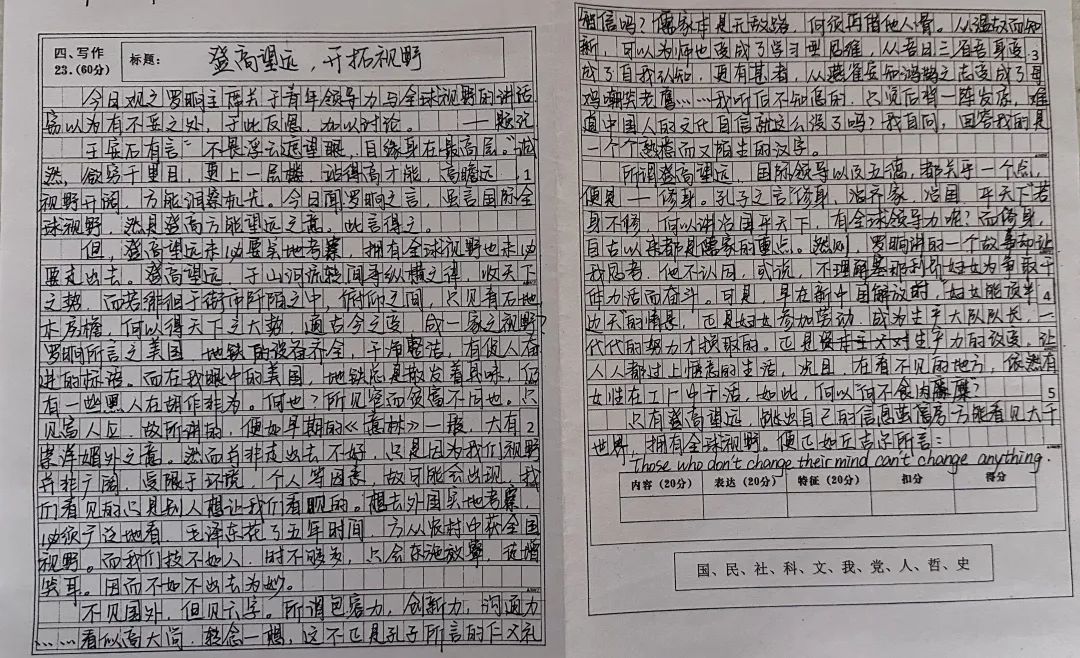 四、写作
23.（60分）
标题：
登高望远，开拓视野
今日观之罗昫主席关于青年领导力与全球视野的讲话
窃以为有不妥之处，于此反思，加以讨论。 ——题记
王安石有言"不畏浮云遮望眼，自缘身在最高层。"诚
然，欲穷千里目，更上一层楼，站得高才能，高瞻远 1
视野开阔，方能洞察机先。今日闻罗昫之言，虽言国际全
球视野，然是登高方能望远之意。此言得之。
但，登高望远未必要实地考察，拥有全球视野也未必
要走出去。登高望远，于山河流转间寻纵横之律，收天下
之势，而若徘徊于街市阡陌之中，俯仰之间，只见青石地
木房檐，何以得天下之大势，通古今之变，成一家之视野？
罗昫所言之美国，地铁的设备齐全，干净整洁，有促人奋
进的标语。而在我眼中的美国，地铁总是散发着臭味，仍
有一些黑人在胡作非为。何也？所见窄而侯富不同也。只
见富人区，故所讲的，便如早期的《意林》一般，大有 2
崇洋媚外之意。然而并非走出去不好，只是因为我们视野
并非广阔，受限于环境，个人等因素，故可能会出现，我
们看见的只是别人想让我们看见的。想去外国实地考察，
必须广泛地看，毛泽东花了五年时间，方从农村中获全国
视野。而我们技不如人，时不够多，只会东施效颦，徒增
笑耳。因而不如不出去为妙。
不见国外，但见六字。所谓包容力，创新力，沟通力
……看似高大尚，转念一想，这不正是孔子所言的仁义礼
智信吗？儒家本是无敌者，何须再借他人骨。从温故而知
新，可以为师也变成了学习型思维，从吾日三省吾身变 3
成了自我认知，更有某者，从燕雀安知鸿鹄之志变成了母
鸡嘲笑老鹰……我听后不知悲的，只觉后背一阵发凉，难
道中国人的文化自信就这么没了吗？我自问，回答我的是
一个个熟悉而又陌生的汉字。
所谓登高望远，国际领导以及五德，都关乎一个点，
便是——修身。孔子之言"修身，治齐家，治国，平天下"若
身不修，何以讲治国平天下，有全球领导力呢？而修身，
自古以来都是儒家的重点。然则，罗昫讲的一个故事却让
我思考，他不认同，或说，不理解基那利价妇女为争取干
体力活而奋斗。可是，早在新中国解放时，"妇女能顶半 4
边天"的情景，正是妇女参加劳动，成为生产大队队长，一
代代的努力才换取的。正是资本主义对生产力的改变，让
人人都过上惬意的生活，况且，在看不见的地方，依然有
女性在工厂中干活，如此，何以"何不食肉糜"？ 5
只有登高望远，跳出自己的信息茧房方能看见大千
世界，拥有全球视野。便正如丘吉尔所言：
"Those who don't change their mind can't change anything.
内容（20分） 表达（20分） 特征（20分） 扣分 得分
国、民、社、科、文、我、党、人、哲、史